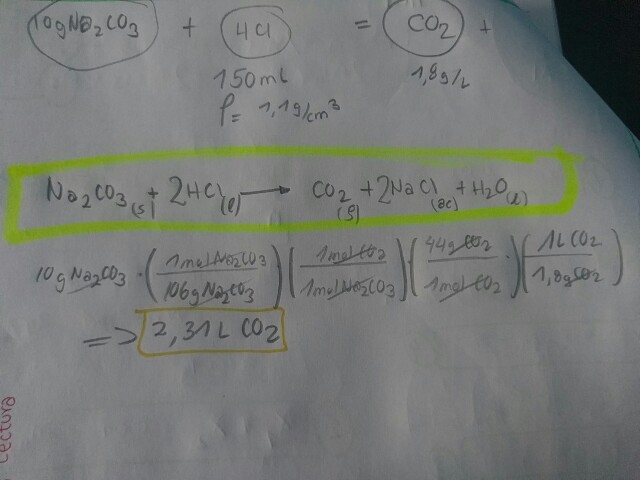 10gNa2CO3 + HCl = CO2 +
150mL 1,8g/L
ρ= 1,1g/cm³
Na2CO3(s) + 2HCl(l) → CO2(g) + 2NaCl(ac) + H2O(l)
10gNa2CO3 · (1molNa2CO3 / 106gNa2CO3) (1molCO2 / 1molNa2CO3) (44gCO2 / 1molCO2) · (1LCO2 / 1,8gCO2)
=> 2,31L CO2
Lectura